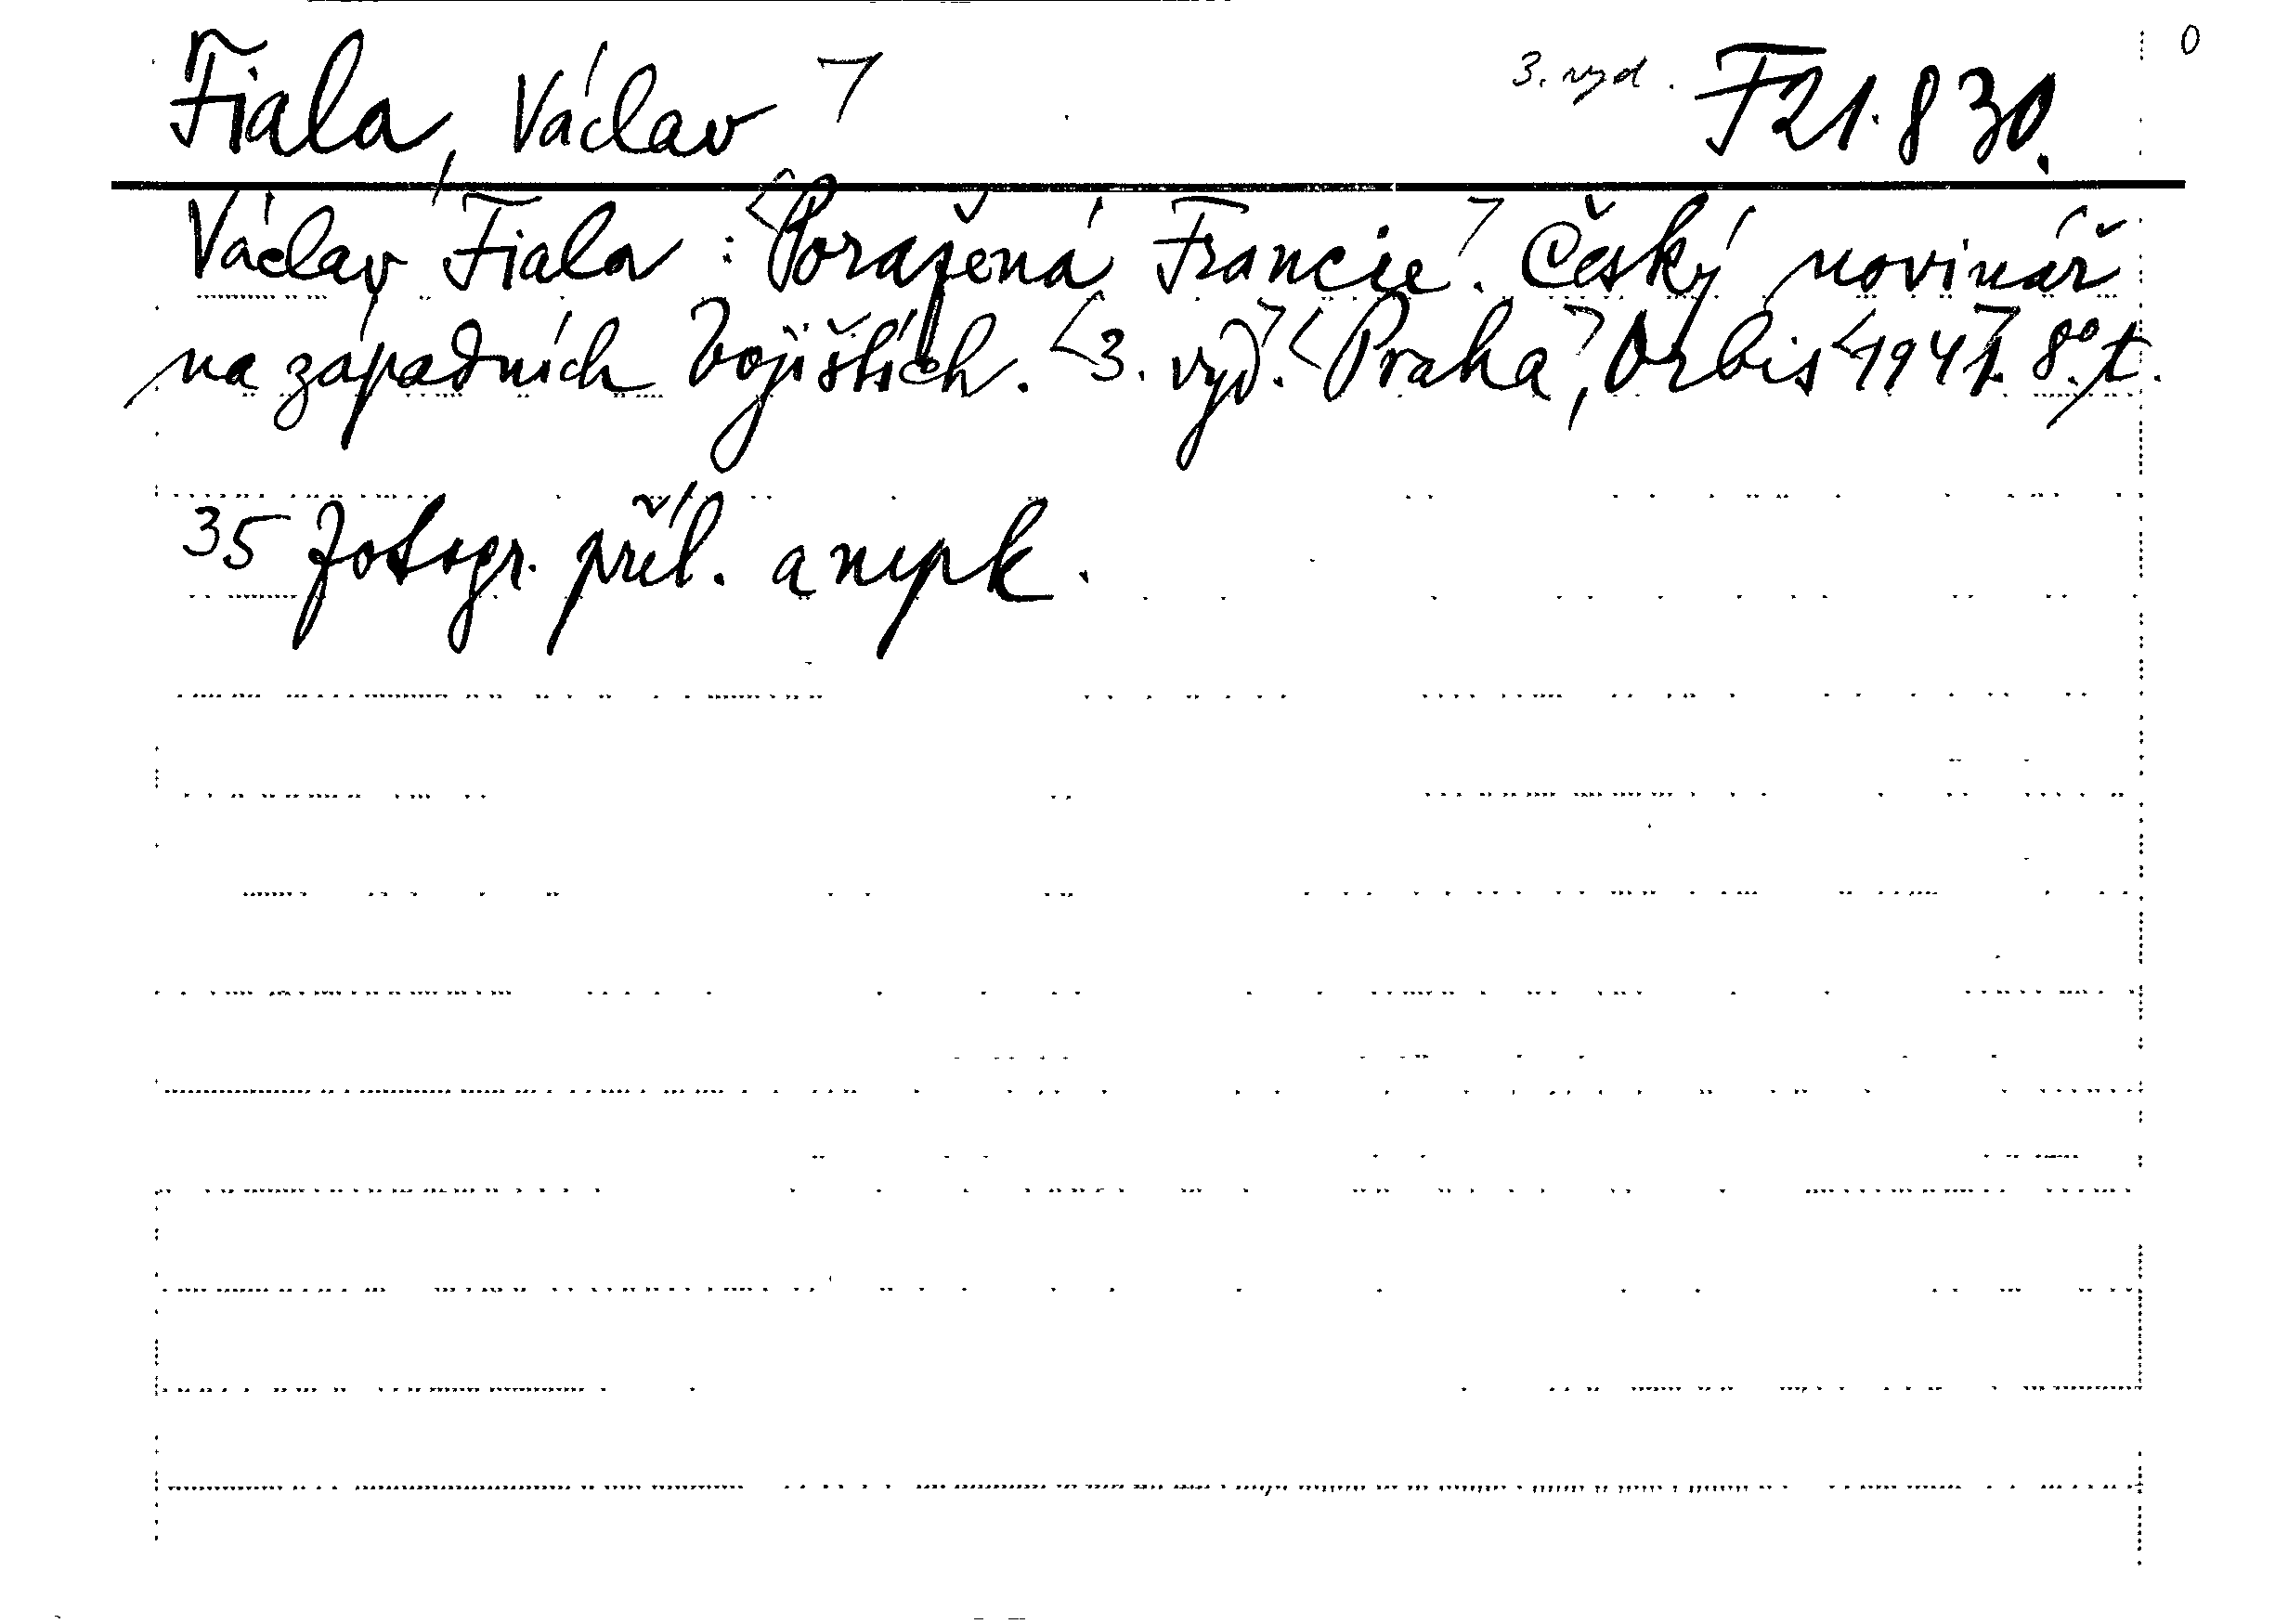 Fiala, Václav 3. vyd. F 21.830.
Václav Fiala: Poražená Francie. Český novinář
na západních bojištích. 3. vyd. Praha, Orbis 1941. 8°. t.
35 fotogr. příl. a mpk.